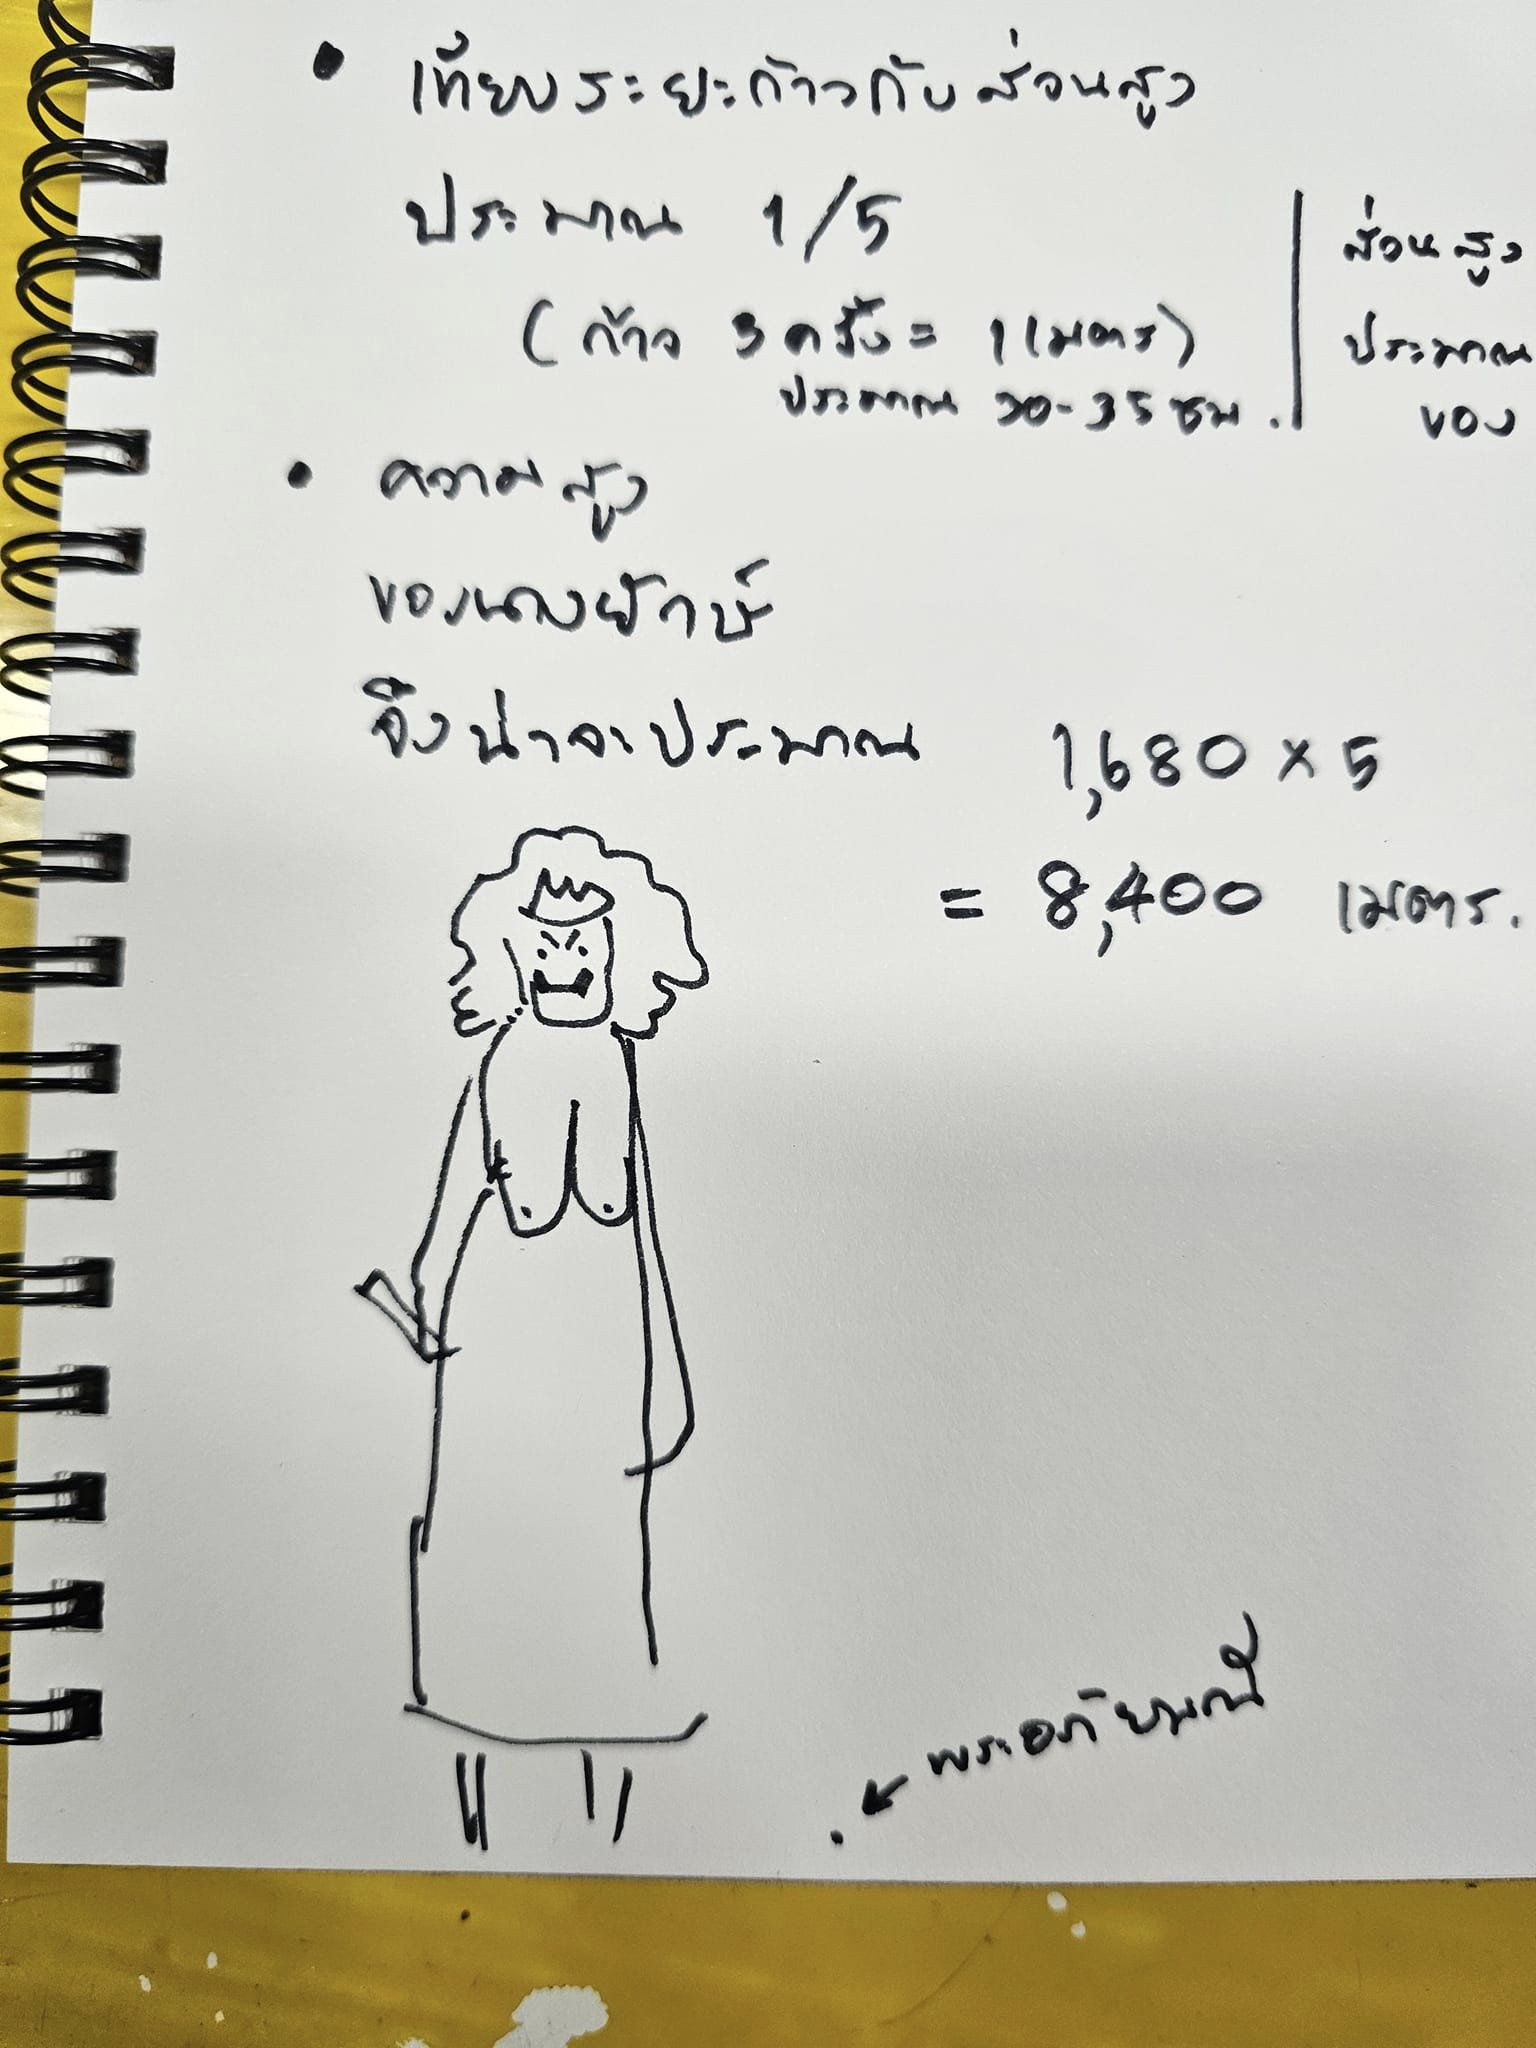 • เทียบระยะก้าวกับส่วนสูง
ประมาณ 1/5
(ก้าว 3 ครั้ง = 1 เมตร)
ประมาณ 30-35 ซม.
ส่วนสูง
ประมาณ
ของ
• ความสูง
ของนางยักษ์
จึงน่าจะประมาณ 1,680 × 5
= 8,400 เมตร.
พระอภัยมณี